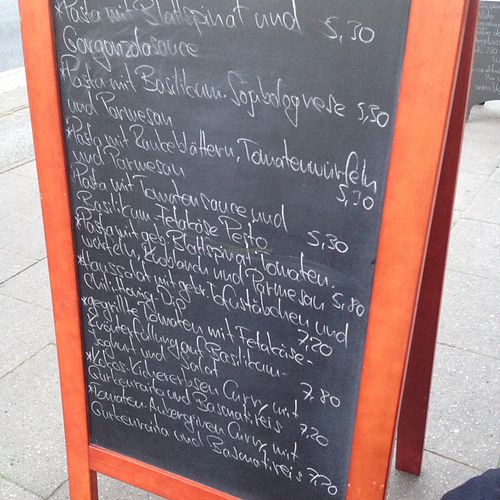 *Pasta mit Blattspinat und
Gorgonzolasauce 5,30
*Pasta mit Basilikum-Sojabolognese
und Parmesan 5,30
*Pasta mit Raukeblättern, Tomatenwürfeln
und Parmesan 5,30
*Pasta mit Tomatensauce und
Basilikum-Fetakäse Pesto 5,30
*Pasta mit geb. Blattspinat, Tomaten-
würfeln, Knoblauch und Parmesan 5,80
*Haussalat mit gebr. Tofustäbchen und
Chili-Honig-Dip 7,20
*gegrillte Tomaten mit Fetakäse-
Kräuterfüllung auf Basilikum-
Joghurt und Salat 7,80
*Kokos-Kichererbsen Curry mit
Gurkenraita und Basmatireis 7,20
*Tomaten-Auberginen Curry mit
Gurkenraita und Basmatireis 7,20